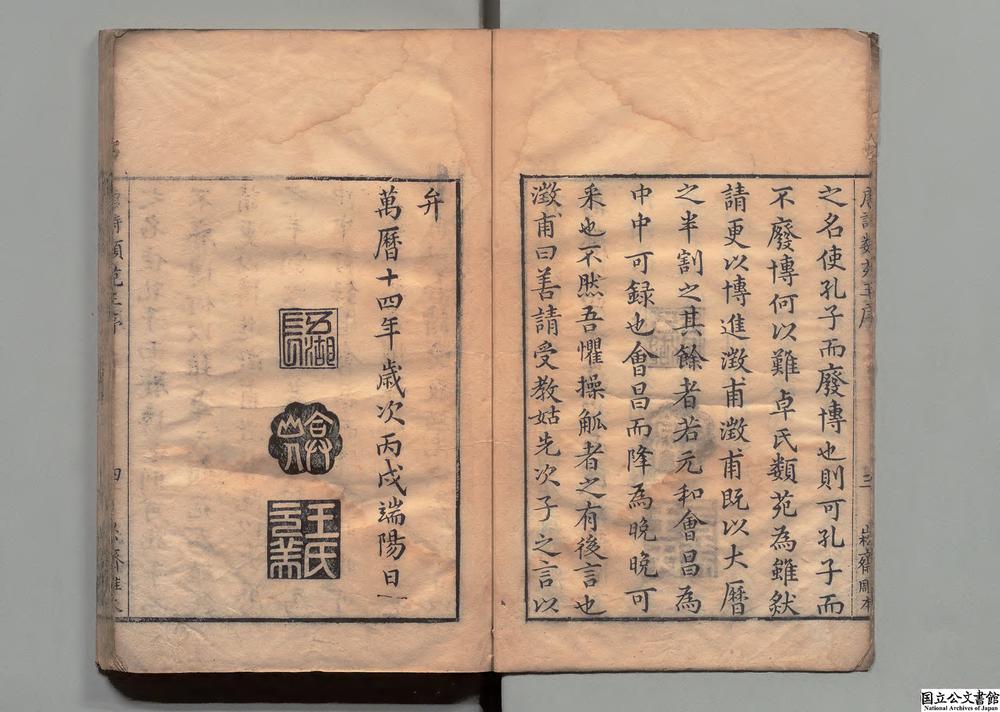 之名使孔子而廢博也則可孔子而
不廢博何以難卓氏類苑為雖然
請更以博進澂甫澂甫既以大曆
之半割之其餘者若元和會昌為
中中可録也會昌而降為晚晚可
采也不然吾懼操觚者之有後言也
澂甫曰善請受教姑先次子之言以
三
崧齋雕本
弁
萬曆十四年歲次丙戌端陽日
五湖長
王氏
四
国立公文書館
National Archives of Japan